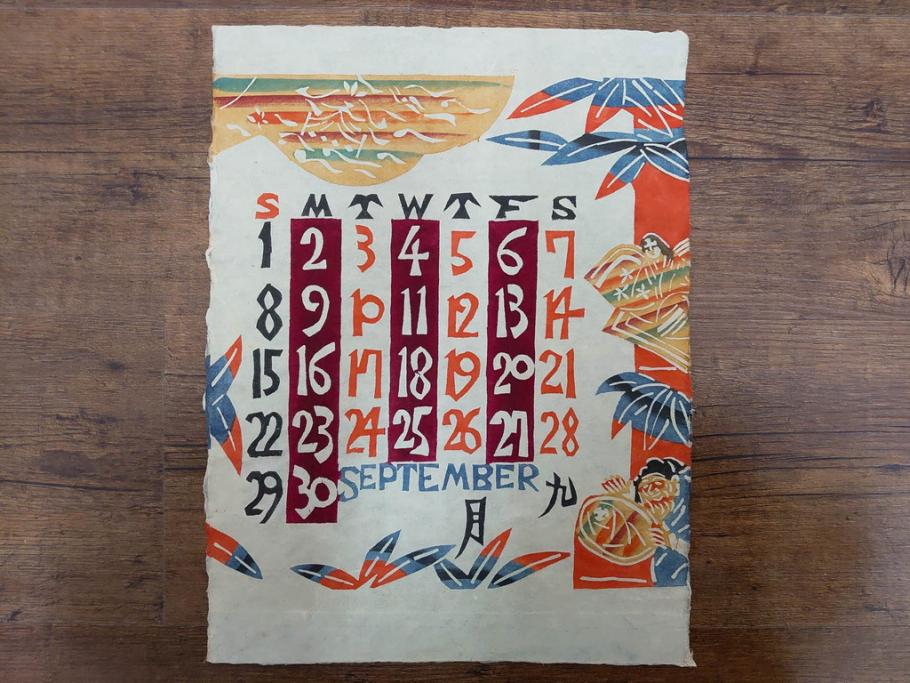 S M T W T F S
1 2 3 4 5 6 7
8 9 10 11 12 13 14
15 16 17 18 19 20 21
22 23 24 25 26 27 28
29 30 SEPTEMBER 九
月